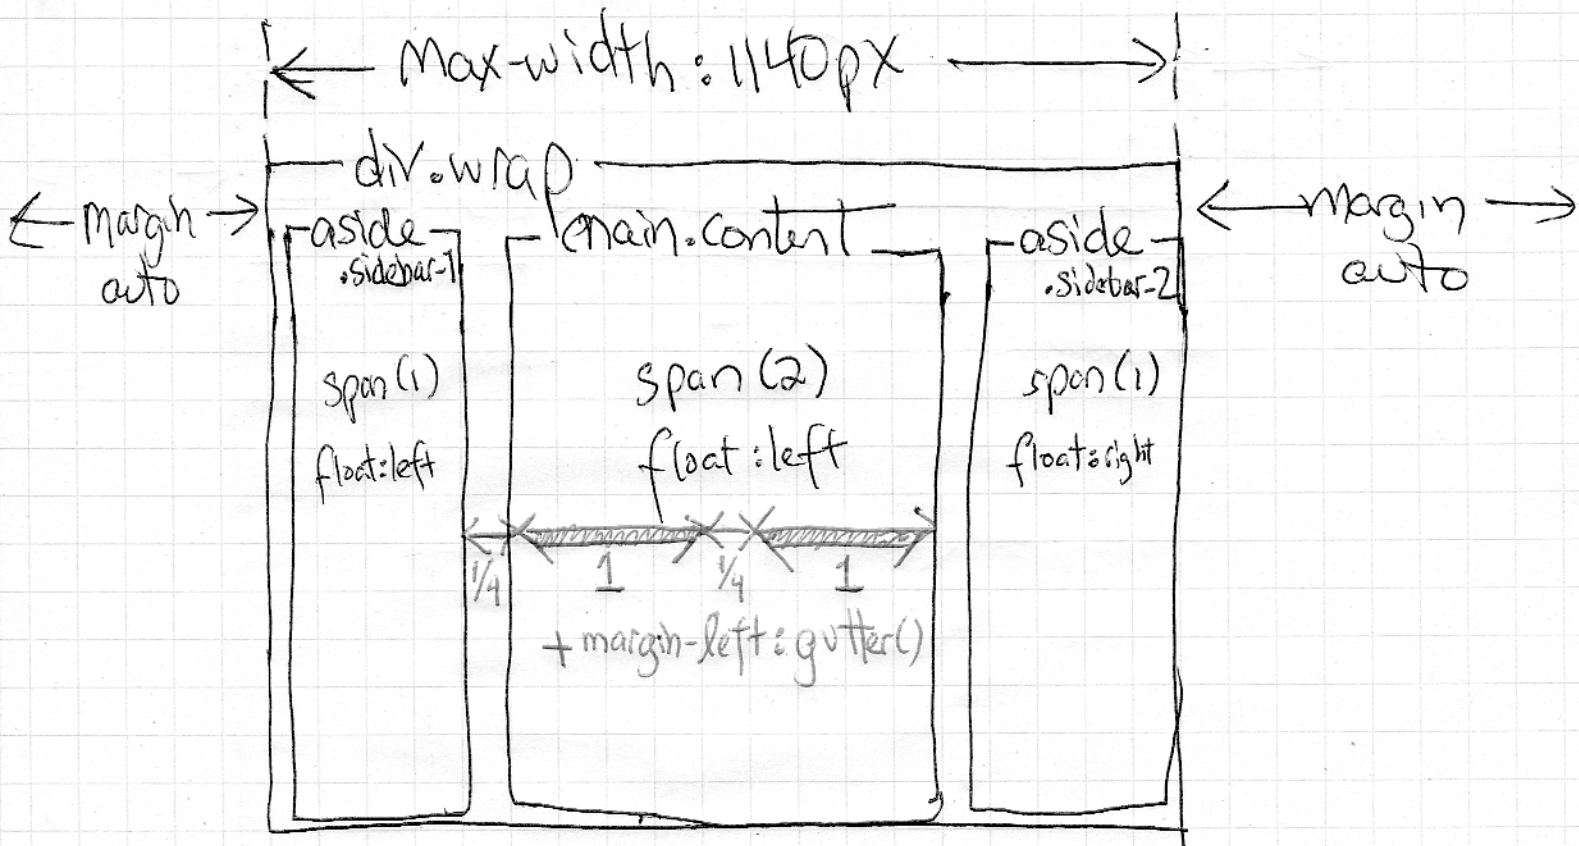 max-width: 1140px
div.wrap
margin auto
aside .sidebar-1
main.content
aside .sidebar-2
margin auto
span(1)
float:left
span(2)
float:left
span(1)
float:right
1/4 1 1/4 1
+ margin-left: gutter()